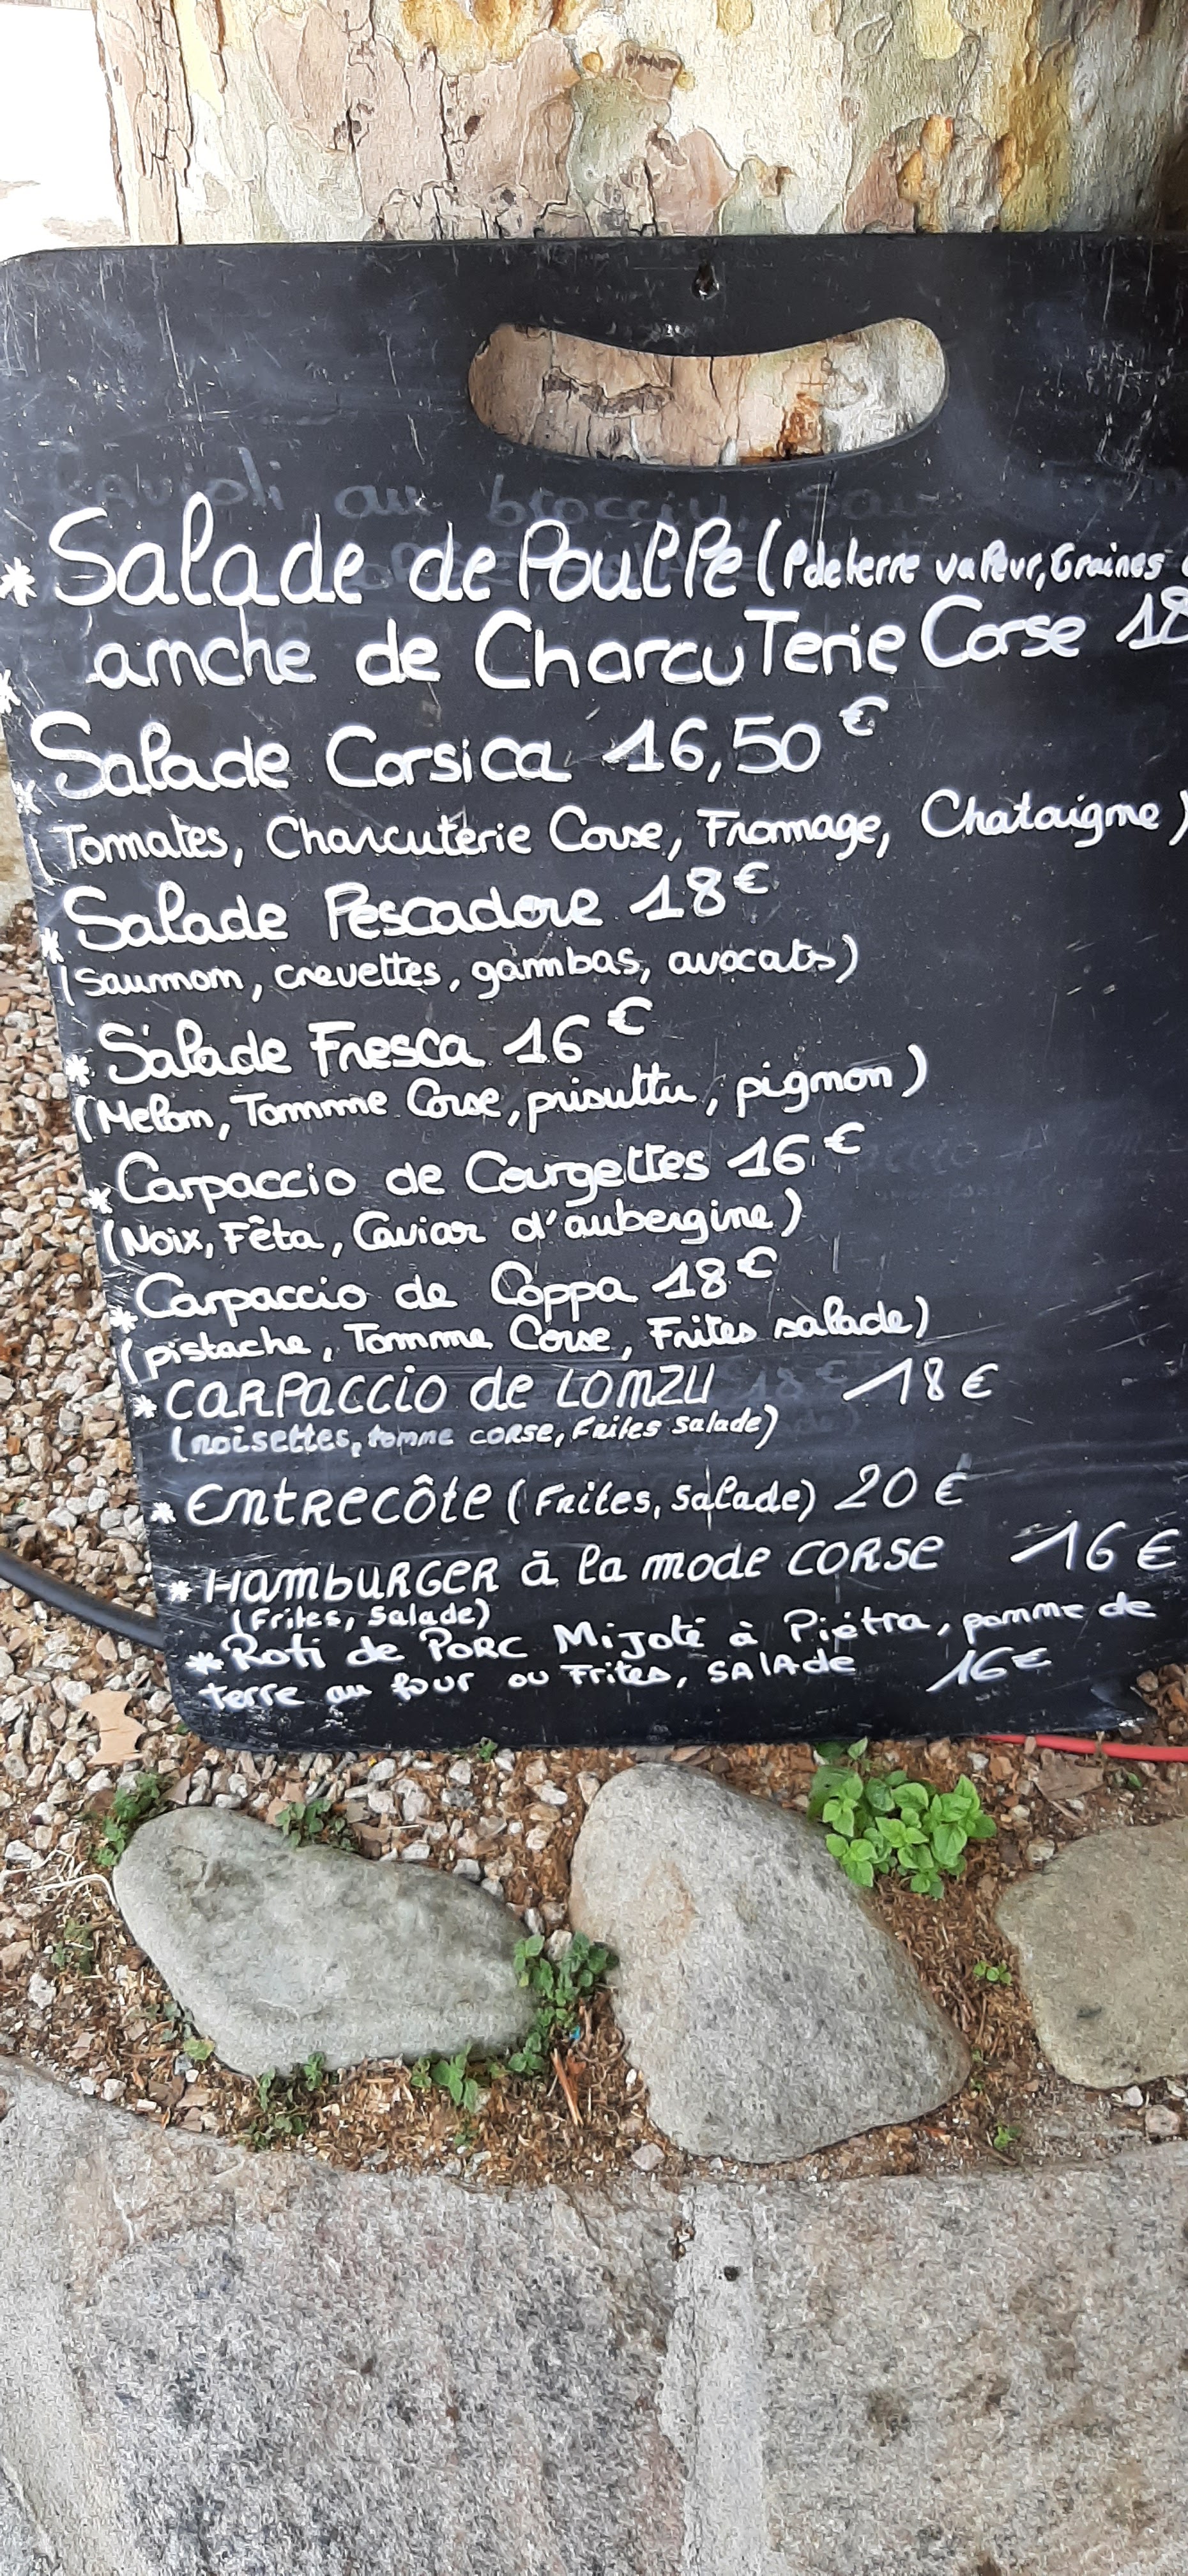 Ravioli au brocciu,
* Salade de Poulpe (Pdeterre vapeur, Graines
* anche de Charcuterie Corse 18
* Salade Corsica 16,50€
(Tommates, Charcuterie Corse, Fromage, Chataigne)
* Salade Pescadore 18€
(Saumom, crevettes, gambas, avocats)
* Salade Fresca 16€
(Melom, Tomme Corse, prisuttu, pignon)
* Carpaccio de Courgettes 16€
(Noix, Fêta, Caviar d'aubergine)
* Carpaccio de Coppa 18€
(pistache, Tomme Corse, Frites salade)
* CARPACCIO de LOMZU 18€
(noisettes, tomme corse, Frites salade)
* ENTRECÔTE (Frites, Salade) 20€
* HAMBURGER à la mode CORSE 16€
(Frites, Salade)
* Roti de PORC MiJoté à Piétra, pomme de
terre au four ou Frites, SALAde 16€